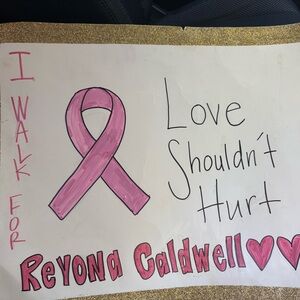 I WALK FOR
Love
Shouldn't
Hurt
Reyona Caldwell